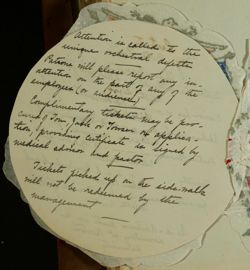 Attention is called to the
unique orchestral
Patrons will please report any in-
attention on the part of any of the
employees (or audience)
Complimentary tickets may be pro-
cured Tom, Jack or on applica-
tion, providing certificate is signed by
medical advisor and pastor.
Tickets picked up on the side-walk
will not be redeemed by the
management